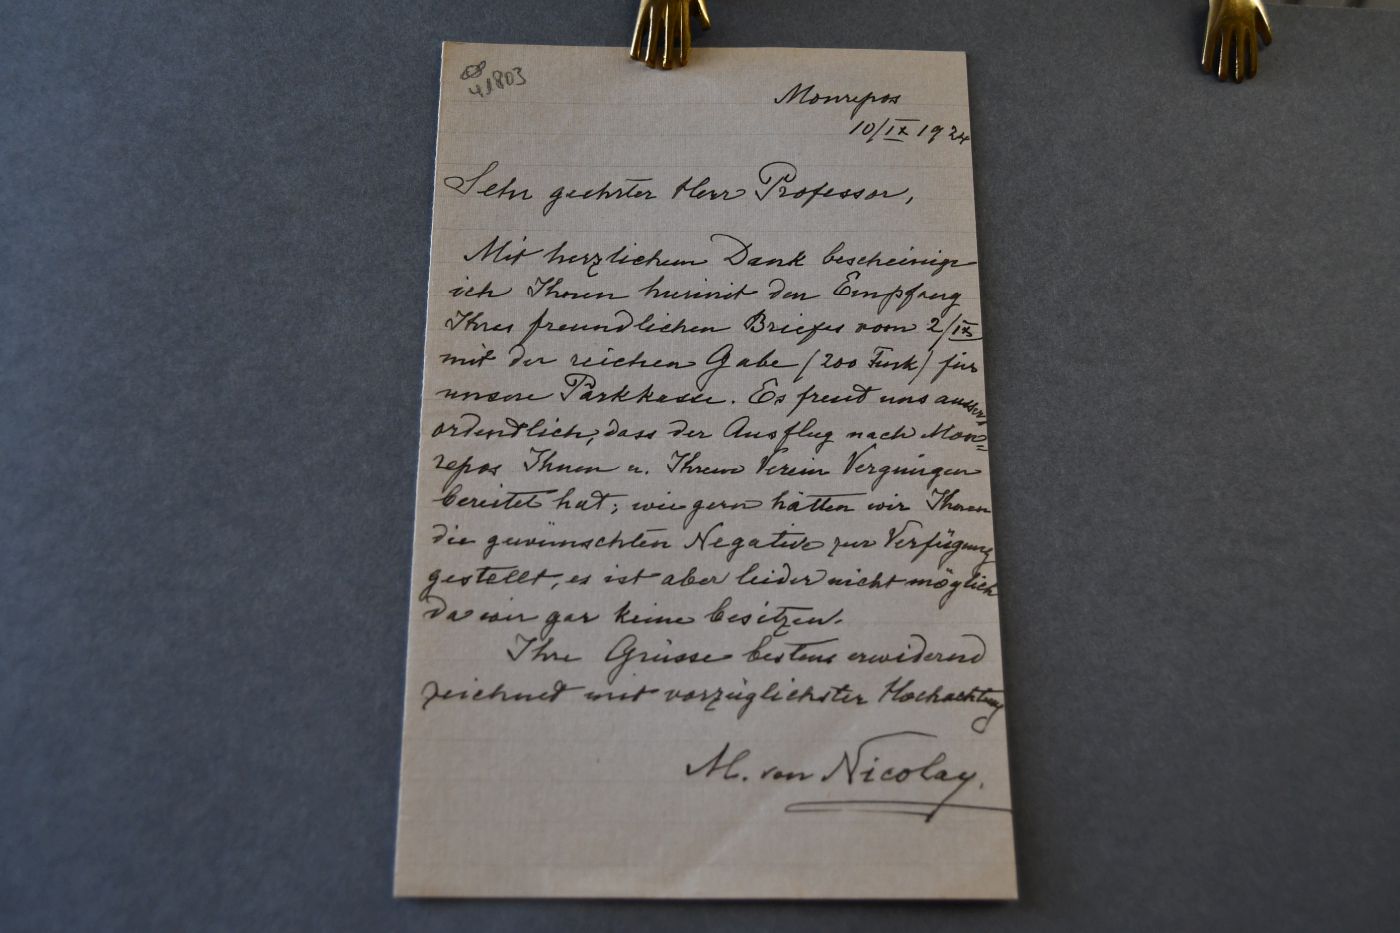 41803
Monrepos
10/IX 1924
Sehr geehrter Herr Professor,
Mit herzlichem Dank bescheinige
ich Ihnen hiermit den Empfang
Ihres freundlichen Briefes vom 2/IX
mit der reichen Gabe (200 Fmk) für
unsere Parkkasse. Es freut uns ausser-
ordentlich, dass der Ausflug nach Mon=
repos Ihnen u. Ihrem Verein Vergnügen
bereitet hat; wie gern hätten wir Ihnen
die gewünschten Negative zur Verfügung
gestellt, es ist aber leider nicht möglich
da wir gar keine besitzen.
Ihre Grüsse bestens erwidernd
zeichnet mit vorzüglichster Hochachtung
M. von Nicolay.